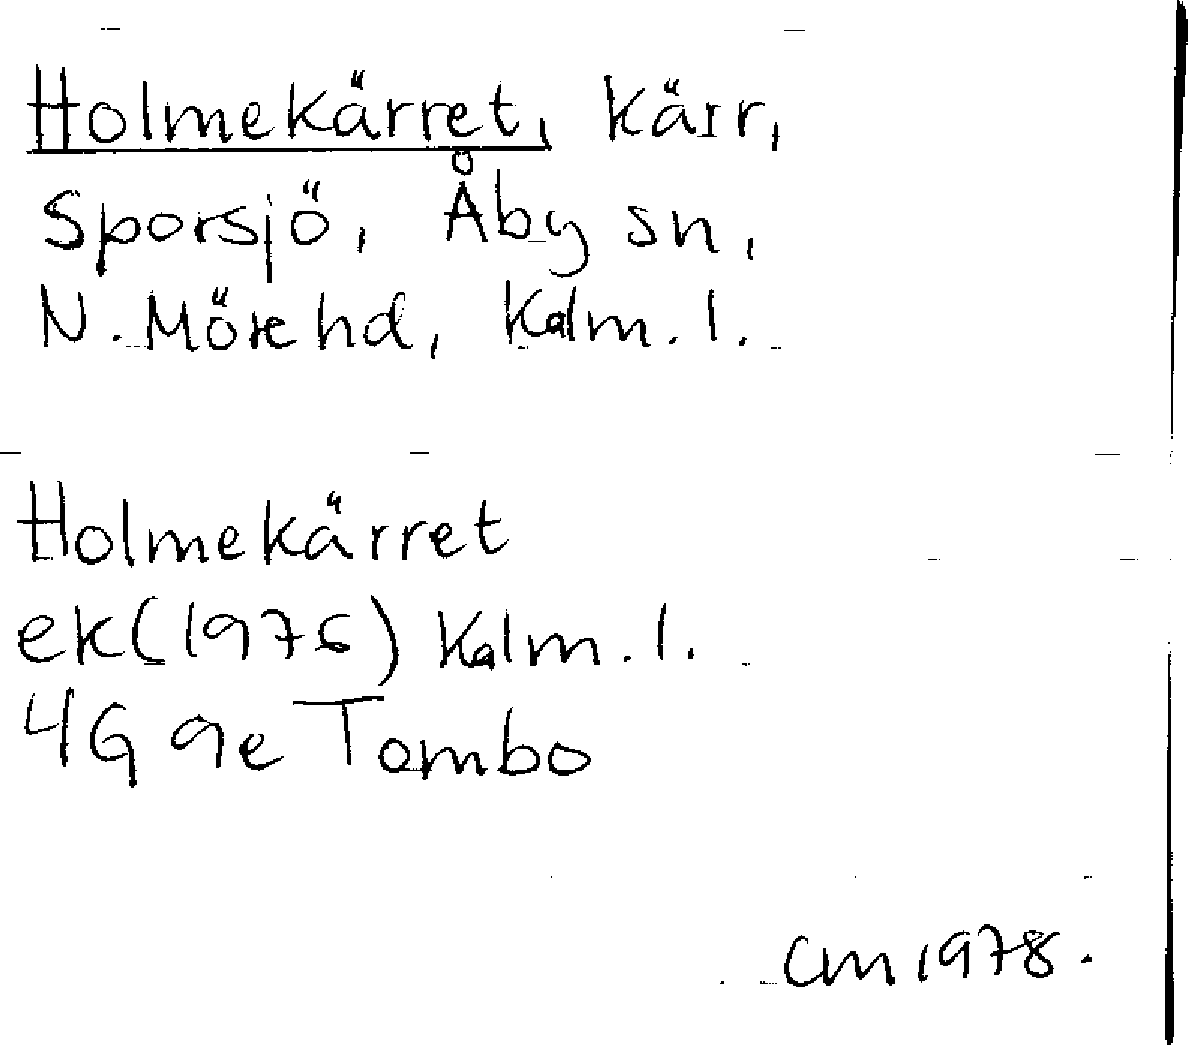 Holmekärret, kärr,
Sporsjö, Åby sn,
N. Möre hd, Kalm. l.
Holmekärret
ek (1976) Kalm. l.
4G 9e Tombo
CM 1978.